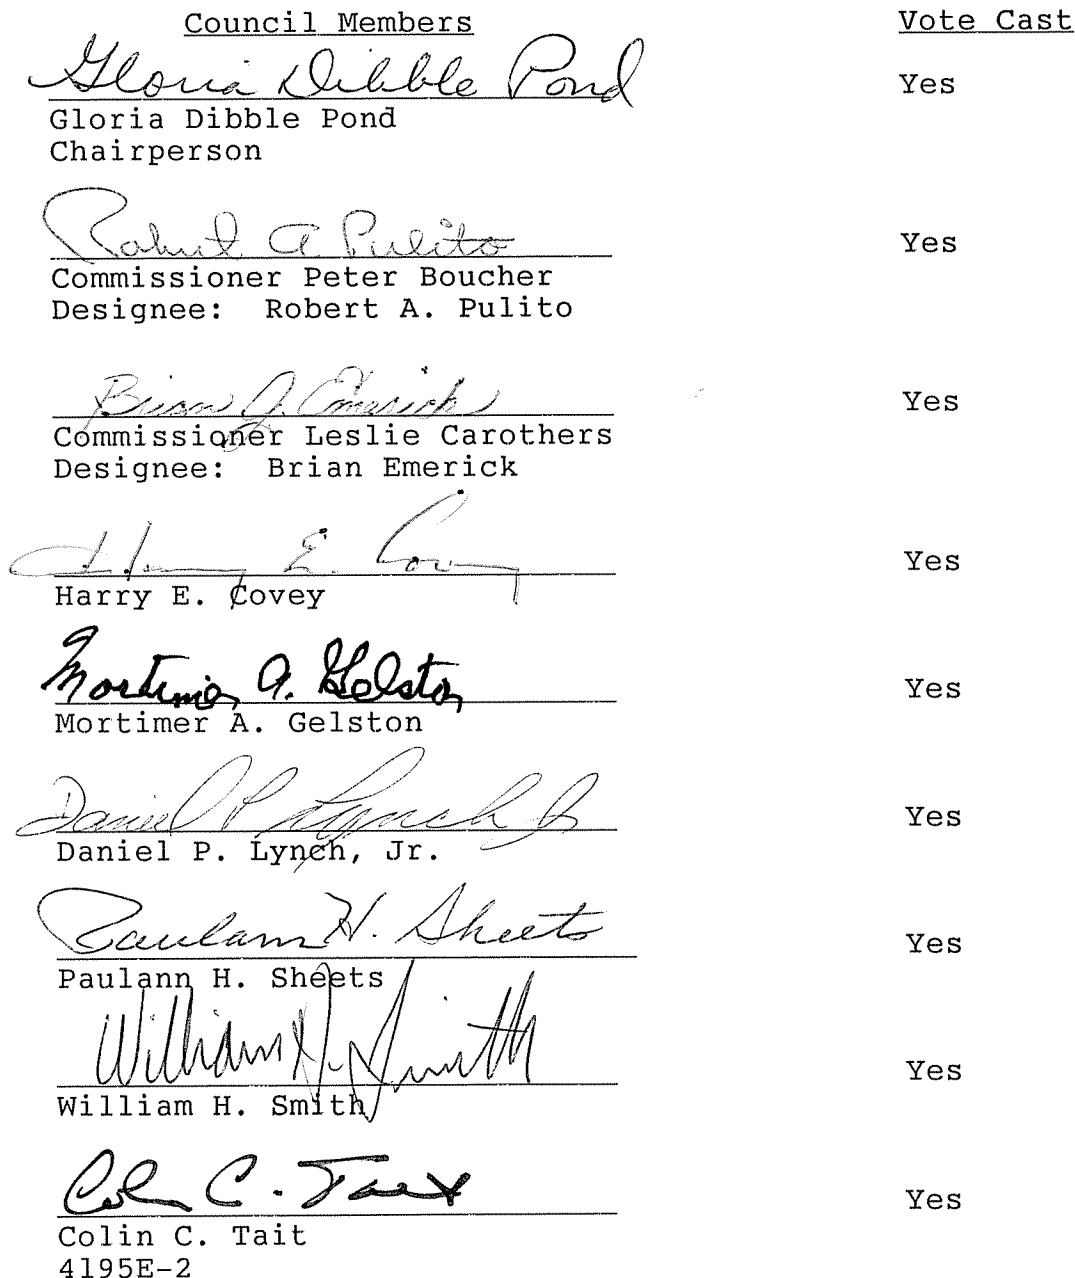 Council Members Vote Cast
Gloria Dibble Pond Yes
Gloria Dibble Pond
Chairperson
Robert A Pulito Yes
Commissioner Peter Boucher
Designee: Robert A. Pulito
Brian J. Emerick Yes
Commissioner Leslie Carothers
Designee: Brian Emerick
Harry E. Covey Yes
Harry E. Covey
Mortimer A. Gelston Yes
Mortimer A. Gelston
Daniel P Lynch Jr Yes
Daniel P. Lynch, Jr.
Paulann H. Sheets Yes
Paulann H. Sheets
William H. Smith Yes
William H. Smith
Colin C. Tait Yes
Colin C. Tait
4195E-2